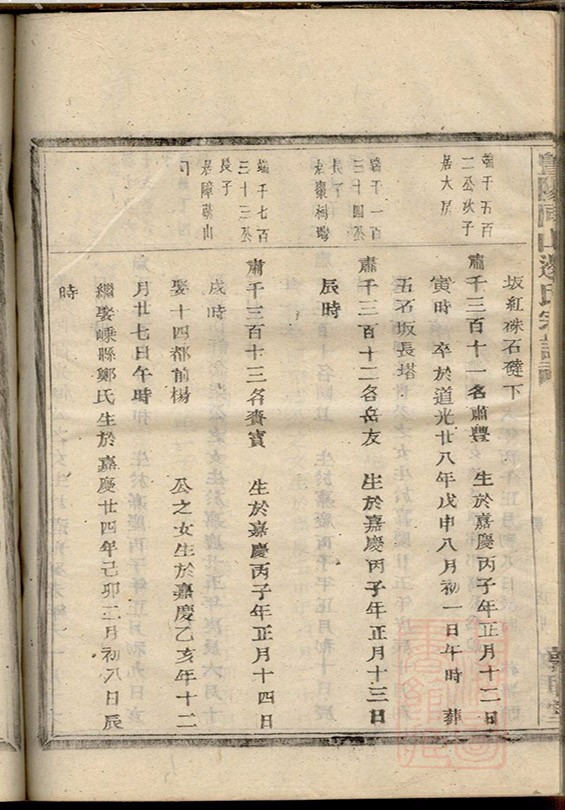 坂紅硃石礎下
端千五百
二公次子
居大屋
肅千三百十一名肅豊　生於嘉慶丙子年正月十二日
寅時　卒於道光廿八年戊申八月初一日午時　葬
五石坂長塔
端千一百
三十四公
長子
肅千三百十二名岳友　生於嘉慶丙子年正月十三日
辰時
端千七百
三十三公
長子
肅千三百十三名賚寶　生於嘉慶丙子年正月十四日
戌時
娶十四都前楊　公之女生於嘉慶乙亥年十二
月廿七日午時
繼娶嵊縣鄭氏生於嘉慶廿四年己卯二月初八日辰
時